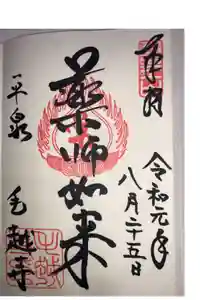 奉拝
令和元年
八月二十五日
薬師如来
平泉
毛越寺